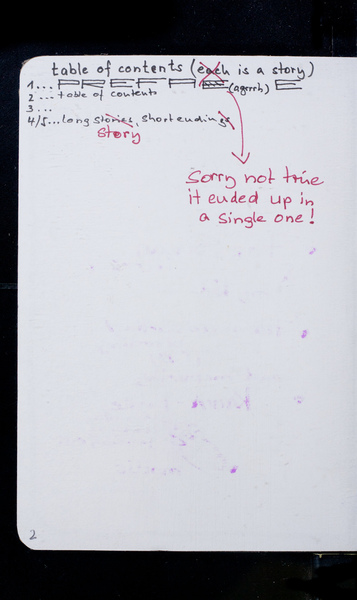 table of contents (each is a story)
1...
(agrrrh)
2 ... table of contents
3 ...
4/5... long stories, short endings
story
Sorry not true
it ended up in
a single one!
2